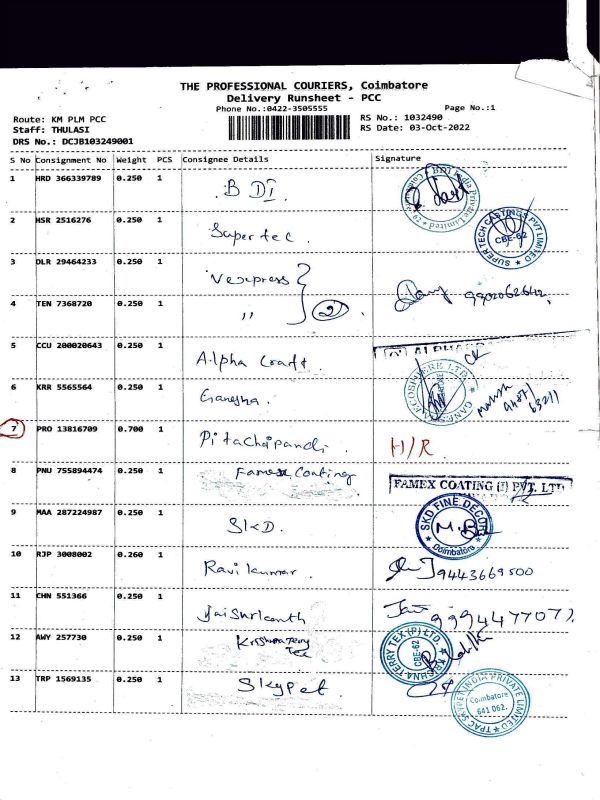 THE PROFESSIONAL COURIERS, Coimbatore
Delivery Runsheet - PCC
Phone No.:0422-3505555
Page No.:1
Route: KM PLM PCC
RS No.: 1032490
Staff: THULASI
RS Date: 03-Oct-2022
DRS No.: DCJB103249001
S No Consignment No Weight PCS Consignee Details Signature
1 HRD 366339789 0.250 1 BDI
2 HSR 2516276 0.250 1 Supertec. SUPERTECH CASTINGS PVT LIMITED CBE-62
3 DLR 29464233 0.250 1 Vexpress
4 TEN 7368720 0.250 1 ,, 2
5 CCU 200020643 0.250 1 Alpha Craft.
6 KRR 5565564 0.250 1 Ganesha.
7 PRO 13816709 0.700 1 Pitachaipandi. H/R.
8 PNU 755894474 0.250 1 Famex Coating FAMEX COATING (I) PVT. LTD
9 MAA 287224987 0.250 1 SKD. SKD FINE DECOR Coimbatore
10 RJP 3008002 0.260 1 Ravikumar. 9443669500
11 CHN 551366 0.250 1 Jaisurkanth 9994477077
12 AWY 257730 0.250 1 Krishna Terry Tex KRISHNA TERRY TEX (P) LTD. CBE-62
13 TRP 1569135 0.250 1 Skypet. TPAC SKYPET INDIA PRIVATE LIMITED Coimbatore 641 062.